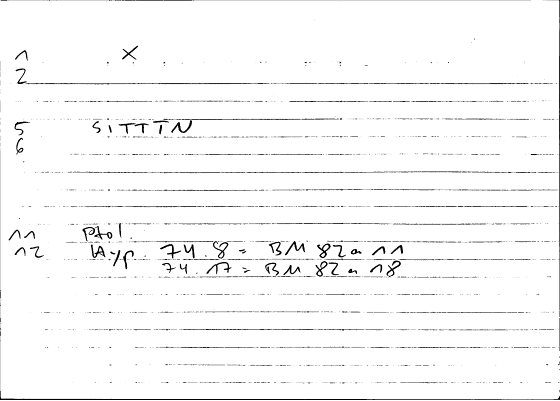 1 X
2
5 SITTTN
6
11 Ptol.
12 Hyp. 74.8 = BM 82a 11
74.17 = BM 82a 18